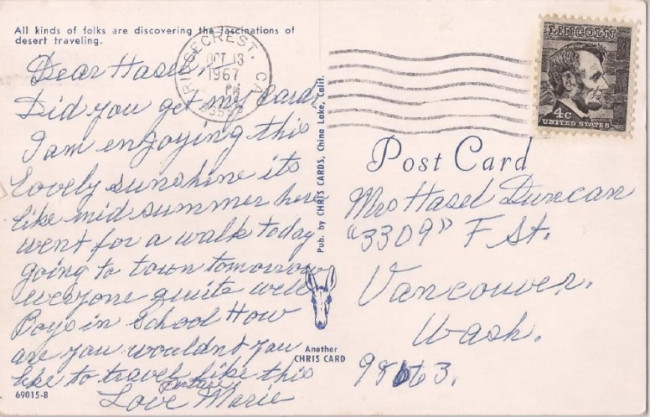 All kinds of folks are discovering the fascinations of
desert traveling.
RIDGECREST, CA
OCT 13
1967
PM
LINCOLN
4c
UNITED STATES
Dear Hasel,
Did you get my Card
I am enjoying this
lovely sunshine its
like mid summer here
went for a walk today
going to town tomorrow
everyone quite well
Boys in School How
are you wouldnt you
like to travel like this
Love Marie
69015-B
Pub. by CHRIS CARDS, China Lake, Calif.
Another
CHRIS CARD
Post Card
Mrs Hasel Duncan
"3309" F St.
Vancouver.
Wash.
98663.